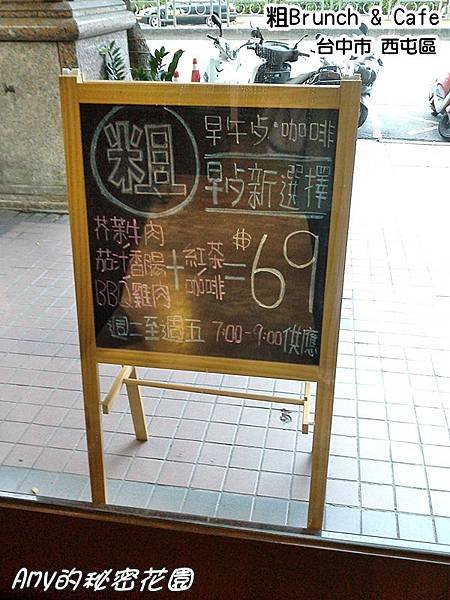 粗Brunch & Cafe
台中市 西屯區
粗
早午歺·咖啡
早歺新選擇
芥茉牛肉
茄汁香腸
BBQ雞肉
+
紅茶
咖啡
=
$69
週二至週五 7:00-9:00供應
Any的秘密花園